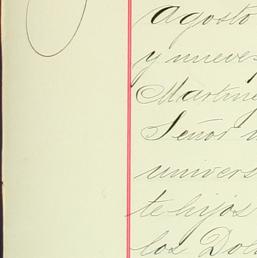 agosto
y nueve
Martine
Señor
univers
te hijos
los Dol